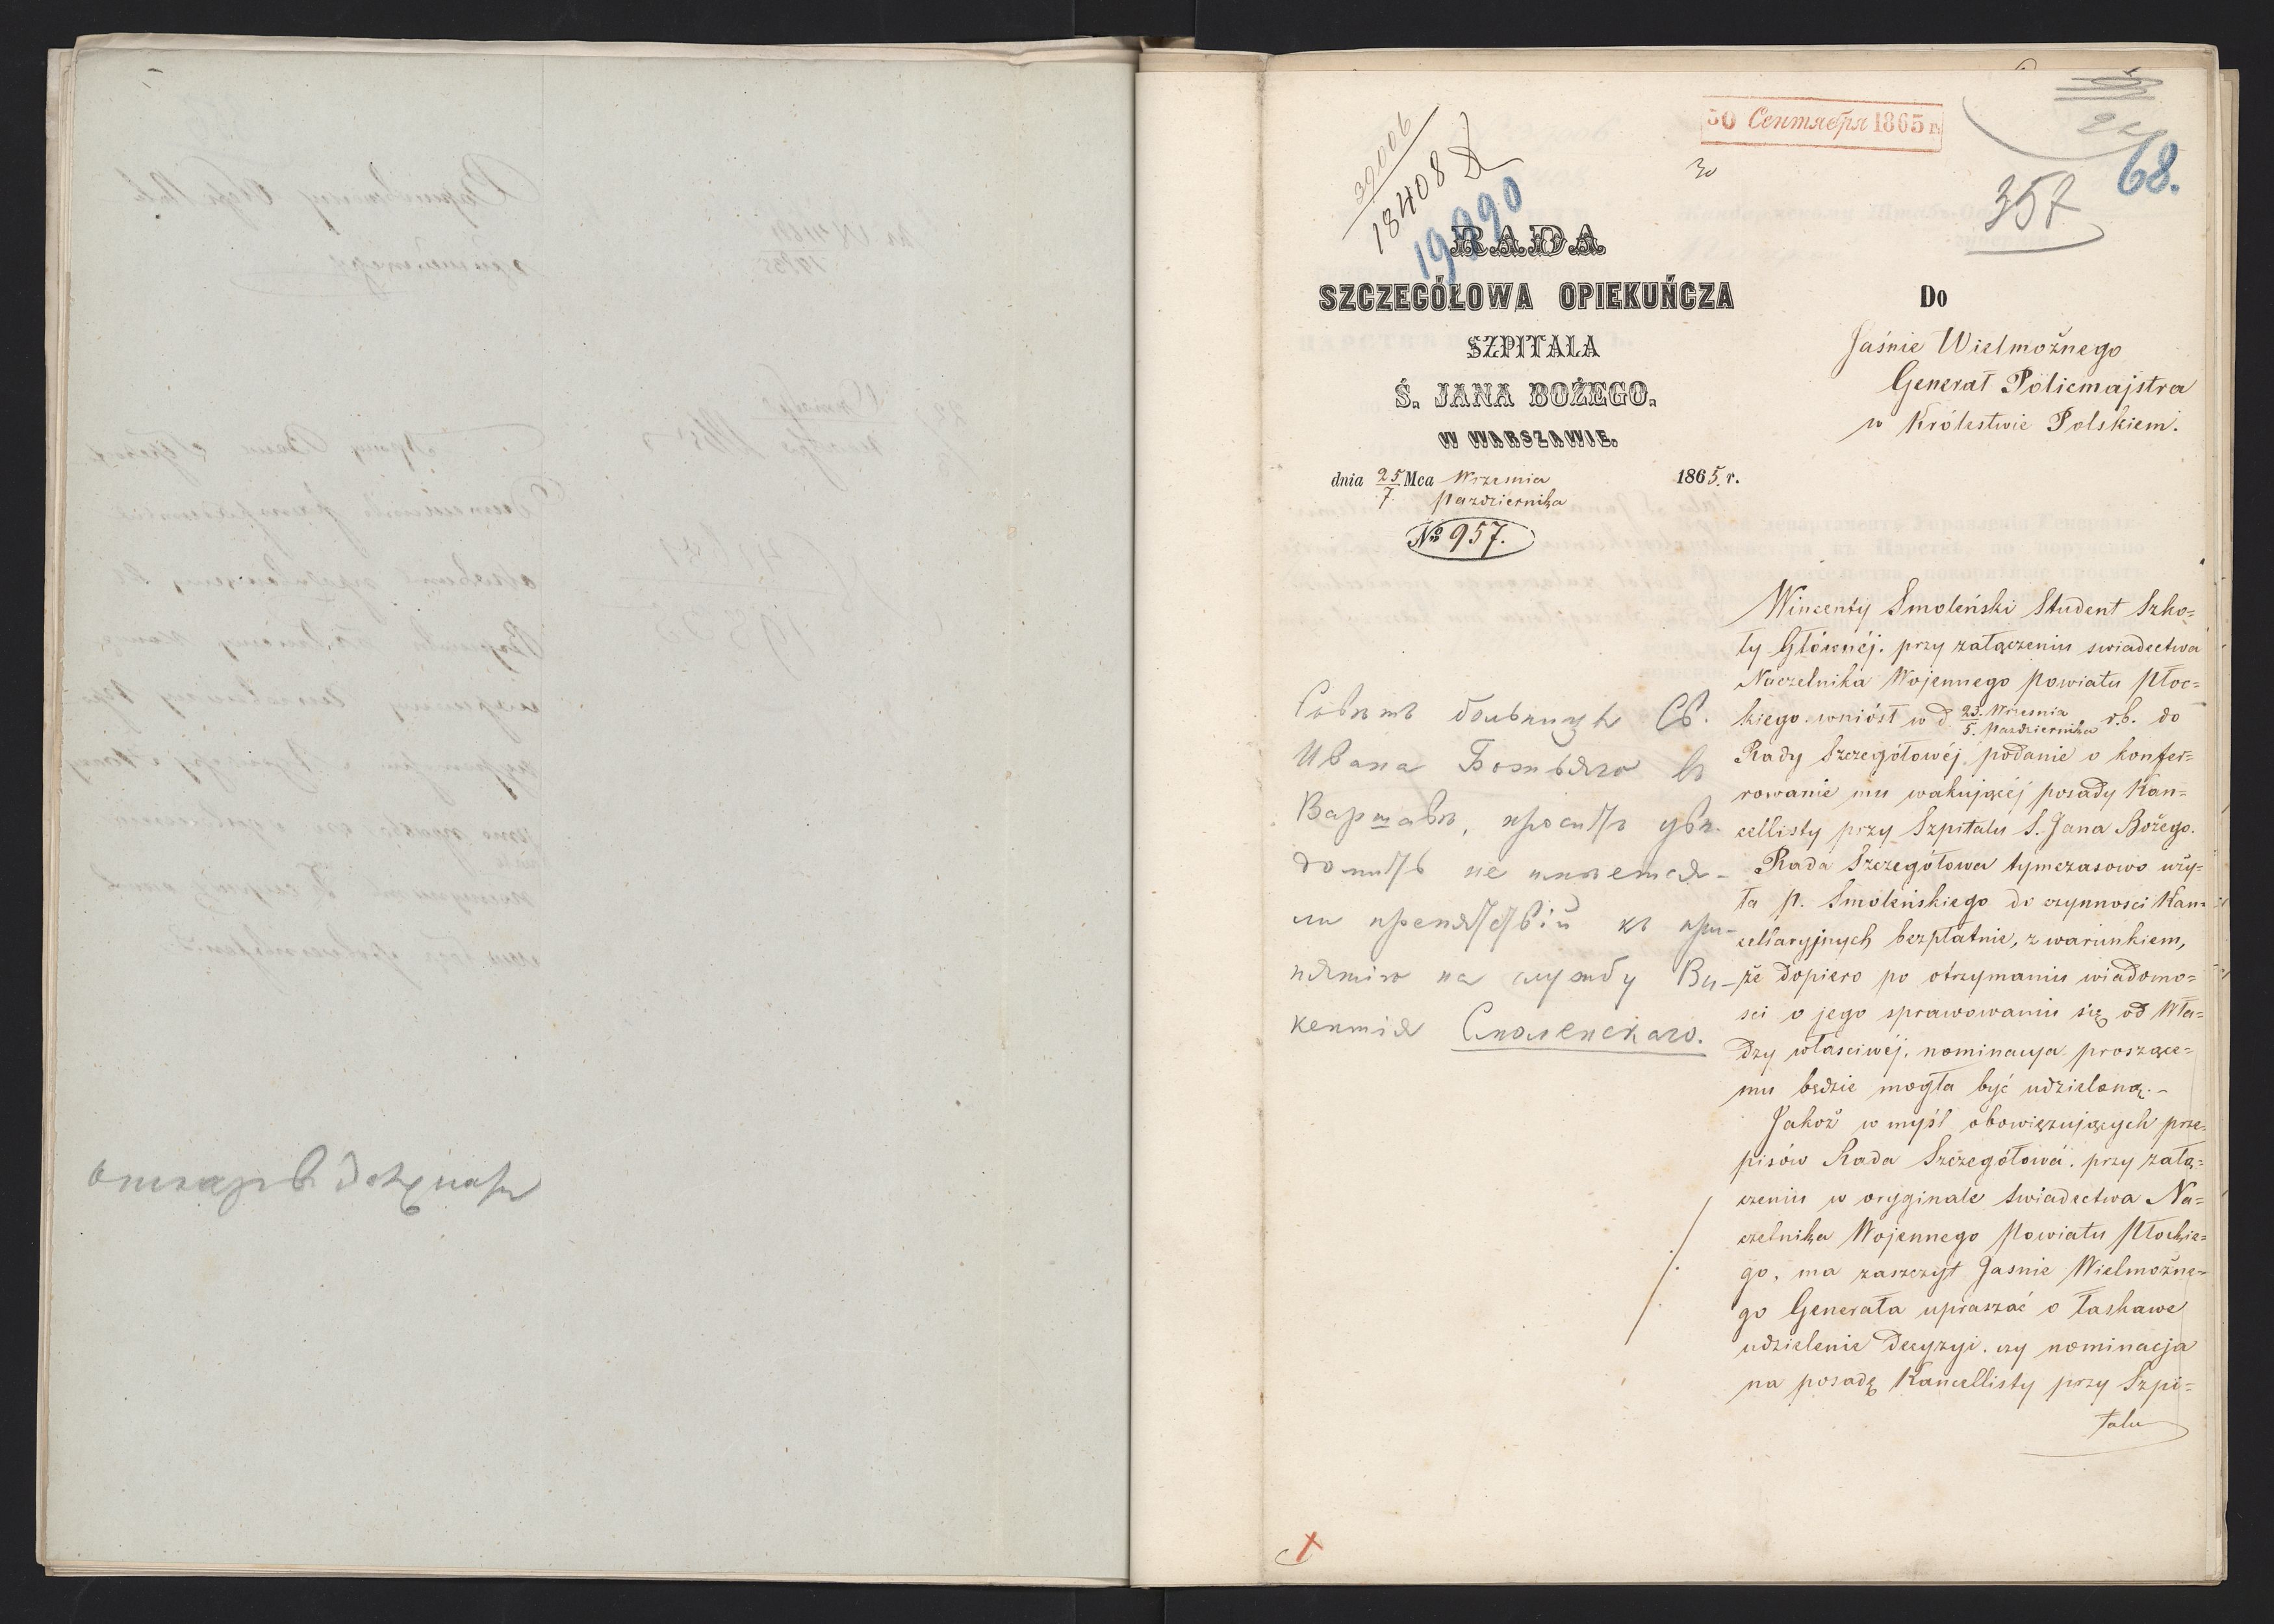 30 Сентября 1865 г.
30
39006
18408
19990
68.
357
RADA
SZCZEGÓŁOWA OPIEKUŃCZA
SZPITALA
Ś. JANA BOŻEGO.
W WARSZAWIE.
dnia 25/7 Mca Września Października 1865. r.
№ 957.
Do
Jaśnie Wielmożnego
Generał Policmajstra
w Królestwie Polskiem.
Совѣтъ больницы Св.
Ивана Божьяго въ
Варшавѣ, проситъ увѣ-
домить не имѣется-
ли препятствій къ при-
нятію на службу Ви-
кентія Смоленскаго.
Wincenty Smoleński Student Szko=
ły Głównéj. przy załączeniu swiadectwa
Naczelnika Wojennego Powiatu Płoc=
kiego wniósł w d. 23. Września / 5. Października r.b. do
Rady Szczegółowéj podanie o konfer=
rowanie mu wakującéj posady Kan=
cellisty przy Szpitalu S. Jana Bożego.
Rada Szczegółowa tymczasowo uży=
ła P. Smoleńskiego do czynnosci Kan=
cellaryjnych bezpłatnie, z warunkiem,
że dopiero po otrzymaniu wiadomo=
sci o jego sprawowaniu się od Wła=
dzy właściwéj, nominacya proszące=
mu będzie mogła być udzieloną.-
Jakoż w myśl obowiązujących prze=
pisów Rada Szczegółowa. przy załą=
czeniu w oryginale świadectwa Na=
czelnika Wojennego Powiatu Płockie=
go, ma zaszczyt Jaśnie Wielmożne=
go Generała upraszać o łaskawe
udzielenie decyzyi. czy nominacja
na posadę Kancellisty przy Szpi=
talu